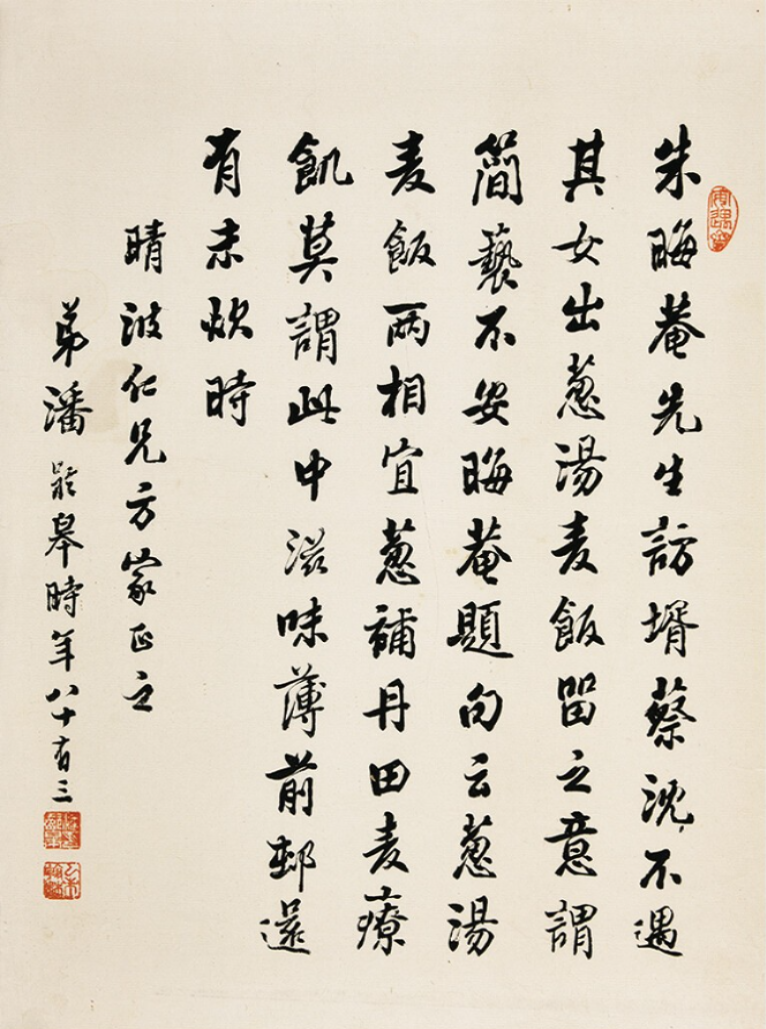 朱晦菴先生訪壻蔡沈不遇
其女出蔥湯麦飯留之意謂
簡藝不安晦菴題句云蔥湯
麦飯兩相宜蔥補丹田麦療
飢莫謂此中滋味薄前邨還
有未炊時
晴波仁兄方家正之
弟潘齡皋時年八十有三